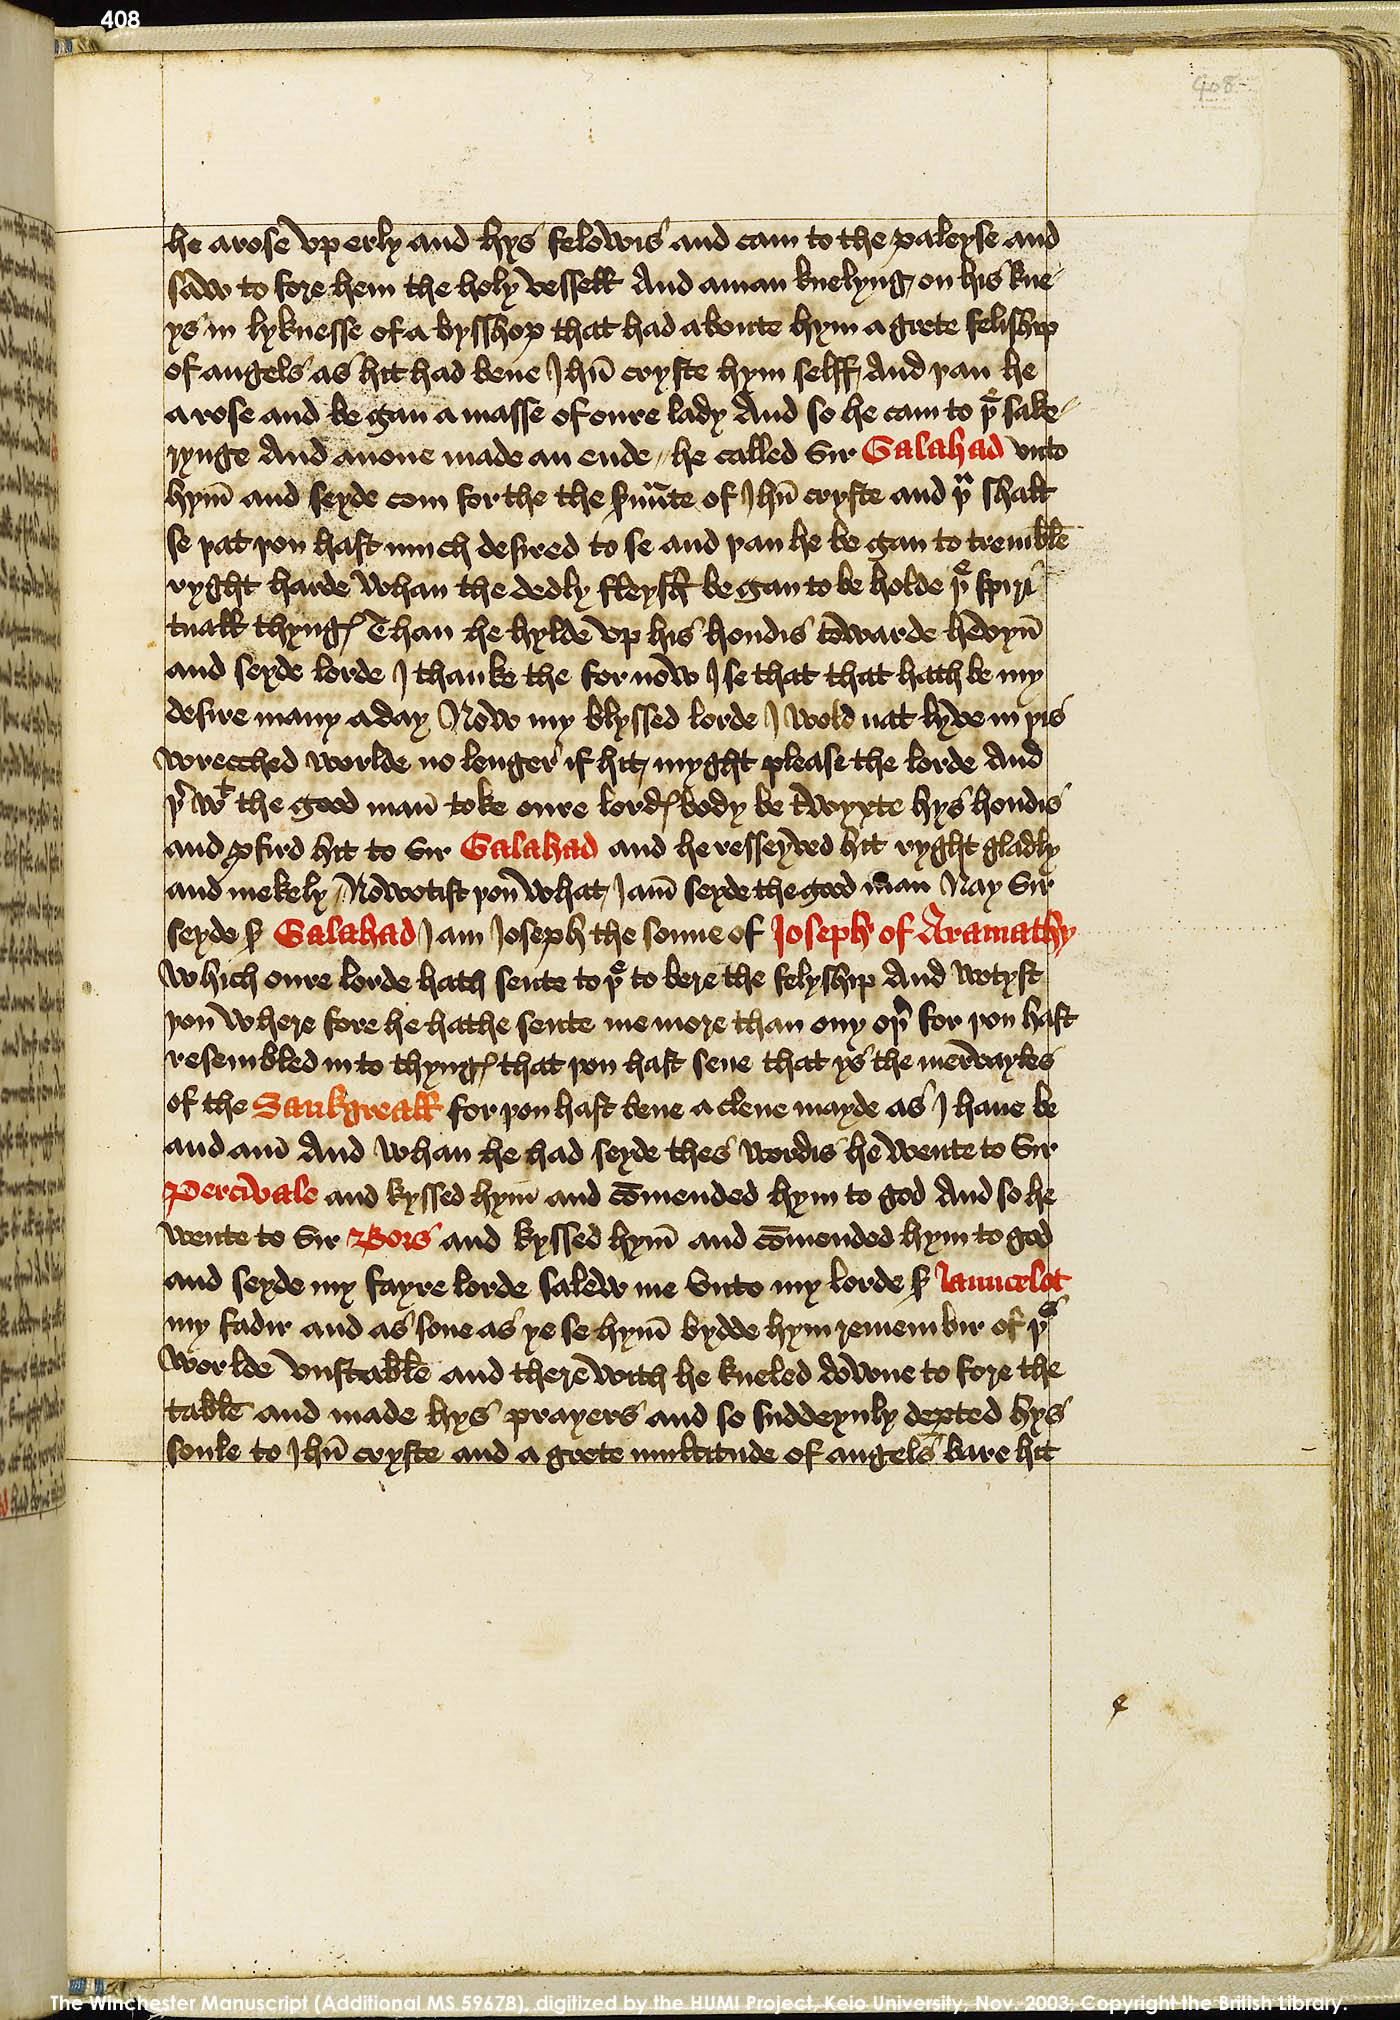 408
408
he arose vp erly and hys felowis and cam to the paleyse and
saw to fore hem the holy vessell And a man knelyng on his kne
ys in lyknesse of a bysshop that had aboute hym a grete feliship
of angels as hit had bene Jhū cryste hym selff And þan he
arose and be gan a masse of oure lady And so he cam to þͤ sake
rynge And anone made an ende he called Sir Galahad vnto
hym̄ and seyde com forthe the s̛uūte of Jhū cryste and þᵘ shalt
se þat þou hast much desired to se and þan he be gan to tremble
ryght harde whan the dedly fleysh be gan to be holde þͤ spiri
tuall thyngꝭ Than he hylde vp his hondis towarde hevyn̄
and seyde lorde I thanke the for now I se that that hath be my
desire many a day Now my blyssed lorde I wold nat lyve in þis
wrecched worlde no lenger if hit myght please the lorde And
þ̛wͭ the good man̄ toke oure lordꝭ body be twyxte hys hondis
and ꝓfird hit to Sir Galahad and he resseyved hit ryght gladly
and mekely Now wotist þou what I am̄ seyde the good man Nay Sir
seyde s̛ Galahad I am Joseph the sonne of Joseph of Aramathy
which oure lorde hath sente to þͤ to bere the felyship And wotyst
þou where fore he hathe sente me more than ony oþ̛ for þou hast
resembled in to thyngꝭ that þou hast sene that ys the mervayles
of the Sankgreall for þou hast bene a clene mayde as I haue be
and am̄ And whan he had seyde thes wordis he wente to Sir
Percivale and kyssed hym̄ and cōmended hym to god And so he
wente to Sir Bors and kyssed hym̄ and cōmended hym to god
and seyde my fayre lorde salew me vnto my lorde s̛ launcelot
my fadir and as sone as ye se hym̄ bydde hym remembir of þˢ
worlde vnstable and there with he kneled downe to fore the
table and made hys prayers and so suddeynly deꝑted hys
soule to Jhū cryste and a grete multitude of angels bare hit
The Winchester Manuscript (Additional MS 59678), digitized by the HUMI Project, Keio University, Nov. 2003; Copyright the British Library.